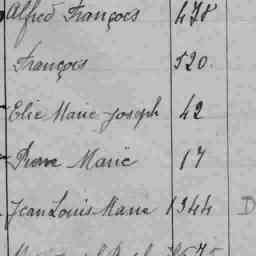 Alfred François 478
François 520.
Elie Marie Joseph 42
Pierre Marie 17
Jean Louis Marie 1344 D